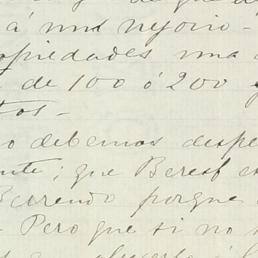 de que
á mi mejoio -
opiedades una
de 100 ó 200
tos -
o debemos despe
nte; que Beresf es
Berrendo porque
- Pero que si no